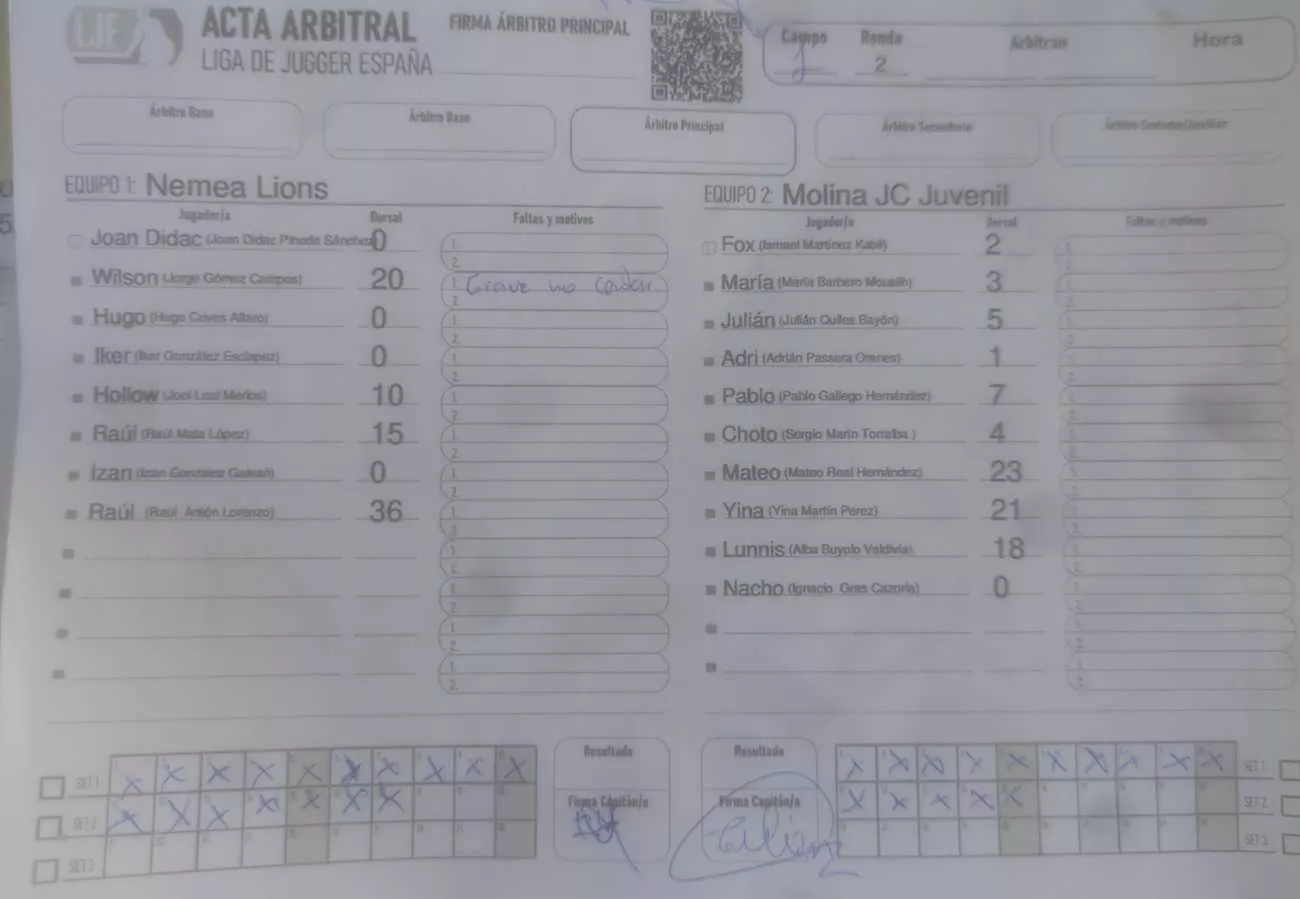 LJE ACTA ARBITRAL
LIGA DE JUGGER ESPAÑA
FIRMA ÁRBITRO PRINCIPAL
Campo Ronda Arbitran Hora
1 2
Árbitro Base Árbitro Base Árbitro Principal Árbitro Secundario
EQUIPO 1: Nemea Lions
Jugador/a Dorsal Faltas y motivos
Joan Didac (Joan Didac Pineda Sánchez) 0
Wilson (Jorge Gómez Campos) 20 1. Grave no contar
Hugo (Hugo Coves Alfaro) 0
Iker (Iker González Esclapez) 0
Hollow 10
Raúl (Raúl Mata López) 15
Izan 0
Raúl (Raúl Antón Lorenzo) 36
EQUIPO 2: Molina JC Juvenil
Jugador/a Dorsal Faltas y motivos
Fox (Ismael Martínez Kabil) 2
María (María Barbero) 3
Julián (Julián Quiles Bayón) 5
Adri (Adrián Passera Orenes) 1
Pablo (Pablo Gallego Hernández) 7
Choto (Sergio Marín Torralba ) 4
Mateo (Mateo Real Hernández) 23
Yina (Yina Martín Perez) 21
Lunnis (Alba Buyolo Valdivia) 18
Nacho (Ignacio Gras Cazorla) 0
SET 1 X X X X X X X X X X
SET 2 X X X X X X X
SET 3
Resultado
Firma Capitán/a
Resultado
Firma Capitán/a
Julián
X X X X X X X X X X SET 1
X X X X X SET 2
SET 3